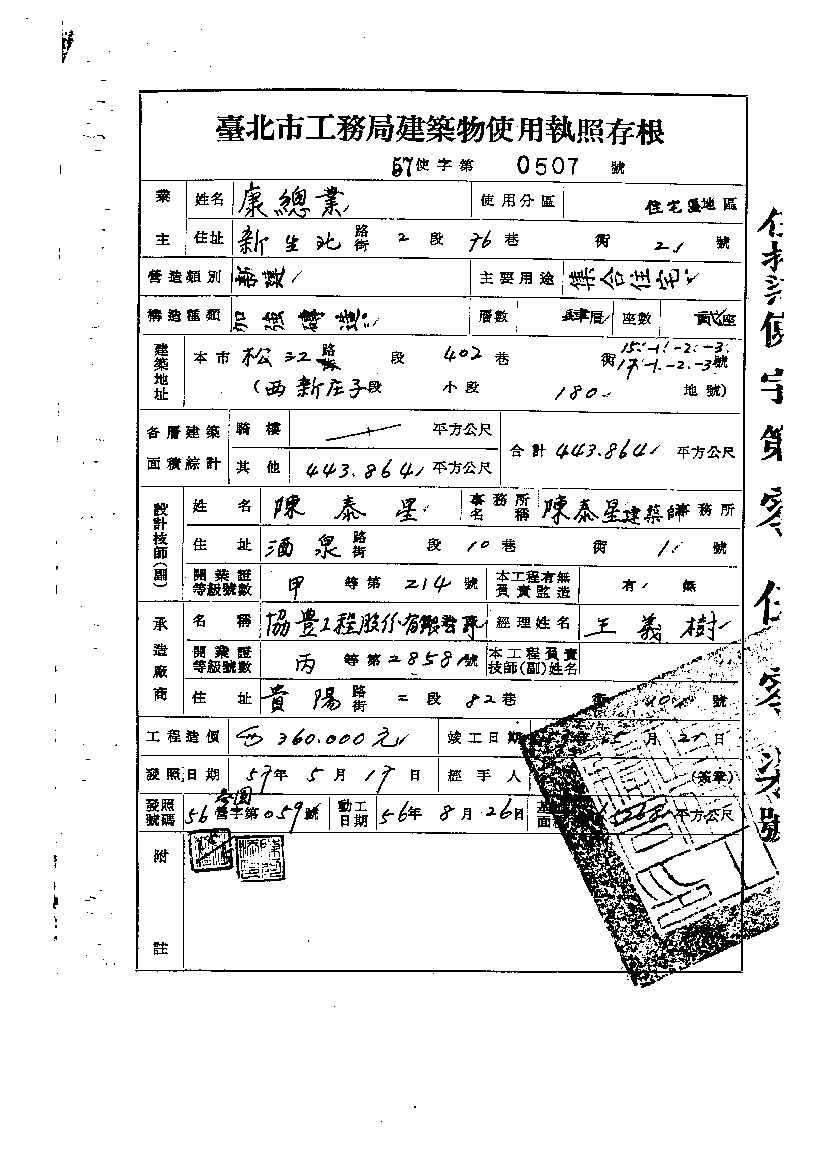 臺北市工務局建築物使用執照存根
57使字第 0507 號
業主 姓名 康總業 使用分區 住宅區地區
住址 新生北路街 2段 76巷 衖 21號
營造類別 新建 主要用途 集合住宅
構造種類 加強磚造 層數 肆層 座數 貳座
建築地址 本市 松江路 段 402巷 衖 15.-1.-2.-3. 17.-1.-2.-3號
(西新庄子段 小段 180. 地號)
各層建築面積綜計 騎樓 平方公尺 合計 443.864 平方公尺
其他 443.864 平方公尺
設計技師(副) 姓名 陳泰星 事務所名稱 陳泰星建築師事務所
住址 酒泉路街 段 10巷 衖 1號
開業證等級號數 甲等第 214號 本工程有無負責監造 有 無
承造廠商 名稱 協豊工程股份有限公司 經理姓名 王義樹
開業證等級號數 丙等第2858號 本工程負責技師(副)姓名
住址 貴陽路街 二段 82巷 衖 號
工程造價 360.000元 竣工日期 月 日
發照日期 57年 5月 17日 經手人 (簽章)
發照號碼 56營字第059號 動工日期 56年 8月 26日 平方公尺
附註